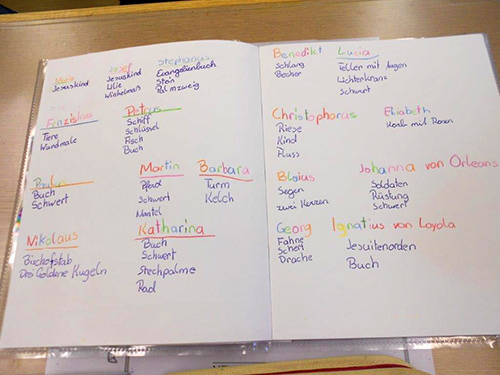 Maria
Jesuskind
Josef
Jesuskind
Lilie
Winkelmaß
Stephanus
Evangelienbuch
Stein
Palmzweig
Franziskus
Tiere
Wundmale
Petrus
Schiff
Schlüssel
Fisch
Buch
Paulus
Buch
Schwert
Martin
Pferd
Schwert
Mantel
Barbara
Turm
Kelch
Nikolaus
Bischofstab
Drei Goldene Kugeln
Katharina
Buch
Schwert
Stechpalme
Rad
Benedikt
Schlang
Becher
Lucia
Teller mit Augen
Lichterkranz
Schwert
Christophorus
Riese
Kind
Fluss
Elisabeth
Korb mit Rosen
Blasius
Segen
zwei Kerzen
Johanna von Orleans
Soldaten
Rüstung
Schwert
Georg
Fahne
Schert
Drache
Ignatius von Loyola
Jesuitenorden
Buch